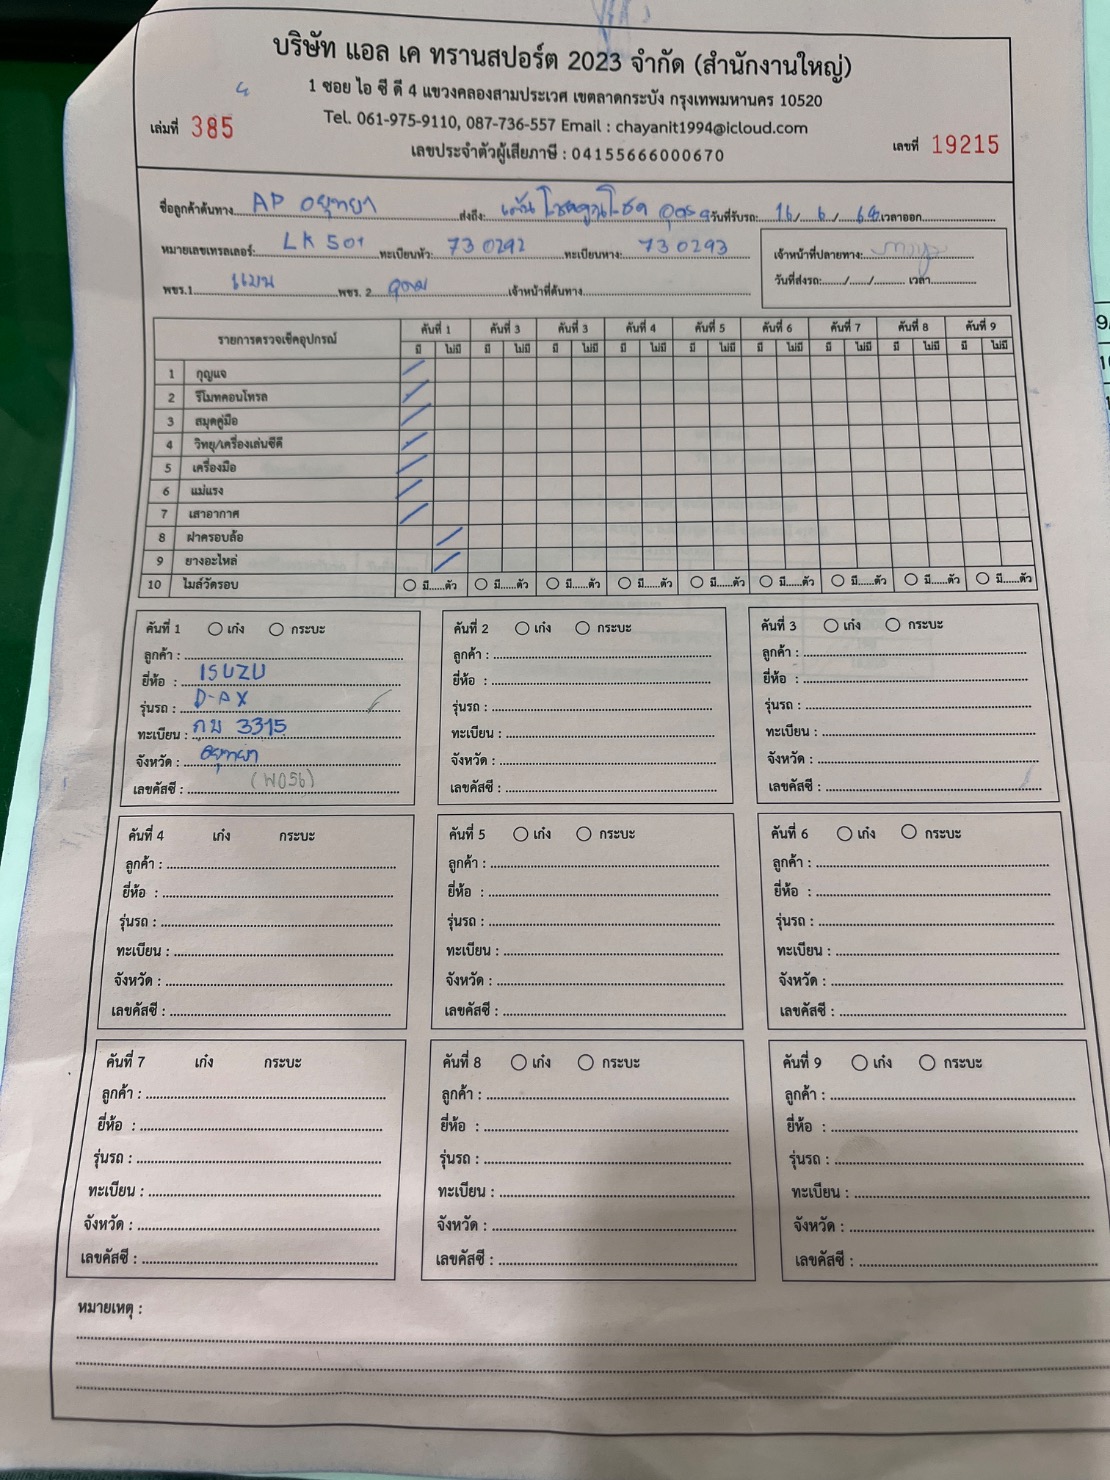 บริษัท แอล เค ทรานสปอร์ต 2023 จำกัด (สำนักงานใหญ่)
1 ซอย ไอ ซี ดี 4 แขวงคลองสามประเวศ เขตลาดกระบัง กรุงเทพมหานคร 10520
Tel. 061-975-9110, 087-736-557 Email : chayanit1994@icloud.com
เล่มที่ 385
เลขที่ 19215
เลขประจำตัวผู้เสียภาษี : 04155666000670
ชื่อลูกค้าต้นทาง AP อยุทยา ส่งถึง: วันที่รับรถ: 16/ 6 / เวลาออก
หมายเลขเทรลเลอร์: LK 501 ทะเบียนหัว: 73 0292 ทะเบียนหาง: 73 0293
เจ้าหน้าที่ปลายทาง:
พขร.1 แมน พขร. 2 อุดม เจ้าหน้าที่ต้นทาง
วันที่ส่งรถ: / / เวลา
รายการตรวจเช็คอุปกรณ์ คันที่ 1 คันที่ 3 คันที่ 3 คันที่ 4 คันที่ 5 คันที่ 6 คันที่ 7 คันที่ 8 คันที่ 9
มี ไม่มี มี ไม่มี มี ไม่มี มี ไม่มี มี ไม่มี มี ไม่มี มี ไม่มี มี ไม่มี มี ไม่มี
1 กุญแจ
2 รีโมทคอนโทรล
3 สมุดคู่มือ
4 วิทยุ/เครื่องเล่นซีดี
5 เครื่องมือ
6 แม่แรง
7 เสาอากาศ
8 ฝาครอบล้อ
9 ยางอะไหล่
10 ไมล์วัดรอบ มี......ตัว มี......ตัว มี......ตัว มี......ตัว มี......ตัว มี......ตัว มี......ตัว มี......ตัว มี......ตัว
คันที่ 1 เก๋ง กระบะ
ลูกค้า :
ยี่ห้อ : ISUZU
รุ่นรถ : D-AX
ทะเบียน : กบ 3315
จังหวัด : อยุทยา
เลขคัสซี : (W056)
คันที่ 2 เก๋ง กระบะ
ลูกค้า :
ยี่ห้อ :
รุ่นรถ :
ทะเบียน :
จังหวัด :
เลขคัสซี :
คันที่ 3 เก๋ง กระบะ
ลูกค้า :
ยี่ห้อ :
รุ่นรถ :
ทะเบียน :
จังหวัด :
เลขคัสซี :
คันที่ 4 เก๋ง กระบะ
ลูกค้า :
ยี่ห้อ :
รุ่นรถ :
ทะเบียน :
จังหวัด :
เลขคัสซี :
คันที่ 5 เก๋ง กระบะ
ลูกค้า :
ยี่ห้อ :
รุ่นรถ :
ทะเบียน :
จังหวัด :
เลขคัสซี :
คันที่ 6 เก๋ง กระบะ
ลูกค้า :
ยี่ห้อ :
รุ่นรถ :
ทะเบียน :
จังหวัด :
เลขคัสซี :
คันที่ 7 เก๋ง กระบะ
ลูกค้า :
ยี่ห้อ :
รุ่นรถ :
ทะเบียน :
จังหวัด :
เลขคัสซี :
คันที่ 8 เก๋ง กระบะ
ลูกค้า :
ยี่ห้อ :
รุ่นรถ :
ทะเบียน :
จังหวัด :
เลขคัสซี :
คันที่ 9 เก๋ง กระบะ
ลูกค้า :
ยี่ห้อ :
รุ่นรถ :
ทะเบียน :
จังหวัด :
เลขคัสซี :
หมายเหตุ :